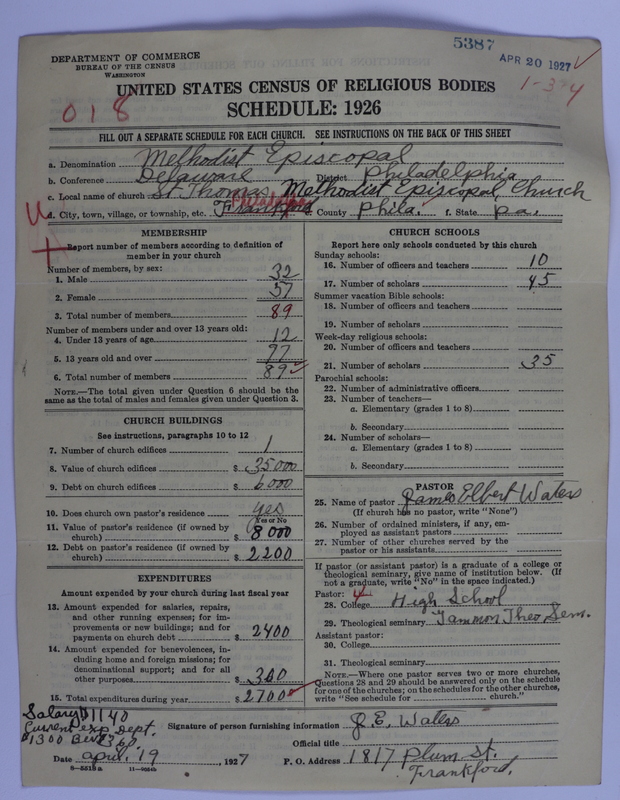 5387
APR 20 1927
DEPARTMENT OF COMMERCE
BUREAU OF THE CENSUS
WASHINGTON
1-374
UNITED STATES CENSUS OF RELIGIOUS BODIES
018
SCHEDULE: 1926
FILL OUT A SEPARATE SCHEDULE FOR EACH CHURCH. SEE INSTRUCTIONS ON THE BACK OF THIS SHEET
a. Denomination Methodist Episcopal
b. Conference Delaware District Philadelphia
c. Local name of church St Thomas Methodist Episcopal Church
d. City, town, village, or township, etc. Frankford Philadelphia e. County Phila. f. State Pa.
MEMBERSHIP
Report number of members according to definition of
member in your church
Number of members, by sex:
1. Male 32
2. Female 57
3. Total number of members 89
Number of members under and over 13 years old:
4. Under 13 years of age 12
5. 13 years old and over 77
6. Total number of members 89
NOTE.—The total given under Question 6 should be the
same as the total of males and females given under Question 3.
CHURCH BUILDINGS
See instructions, paragraphs 10 to 12
7. Number of church edifices 1
8. Value of church edifices $ 35000
9. Debt on church edifices $ 6000
10. Does church own pastor's residence yes
(Yes or No)
11. Value of pastor's residence (if owned by
church) $ 8000
12. Debt on pastor's residence (if owned by
church) $ 2200
EXPENDITURES
Amount expended by your church during last fiscal year
13. Amount expended for salaries, repairs,
and other running expenses; for im-
provements or new buildings; and for
payments on church debt $ 2400
14. Amount expended for benevolences, in-
cluding home and foreign missions; for
denominational support; and for all
other purposes $ 300
15. Total expenditures during year $ 2700
CHURCH SCHOOLS
Report here only schools conducted by this church
Sunday schools:
16. Number of officers and teachers 10
17. Number of scholars 45
Summer vacation Bible schools:
18. Number of officers and teachers
19. Number of scholars
Week-day religious schools:
20. Number of officers and teachers
21. Number of scholars 35
Parochial schools:
22. Number of administrative officers
23. Number of teachers—
a. Elementary (grades 1 to 8)
b. Secondary
24. Number of scholars—
a. Elementary (grades 1 to 8)
b. Secondary
PASTOR
25. Name of pastor James Elbert Waters
(If church has no pastor, write "None")
26. Number of ordained ministers, if any, em-
ployed as assistant pastors
27. Number of other churches served by the
pastor or his assistants
If pastor (or assistant pastor) is a graduate of a college or
theological seminary, give name of institution below. (If
not a graduate, write "No" in the space indicated.)
Pastor: 4
28. College High School
29. Theological seminary Gammon Theo Sem.
Assistant pastor:
30. College
31. Theological seminary
NOTE.—Where one pastor serves two or more churches,
Questions 28 and 29 should be answered only on the schedule
for one of the churches; on the schedules for the other churches,
write "See schedule for church."
Salary $1140
Current exp. Dept.
$1300 Ben. $360.
Signature of person furnishing information J. E. Waters
Official title
Date april, 19, 1927 P. O. Address 1817 Plum St.
Frankford.